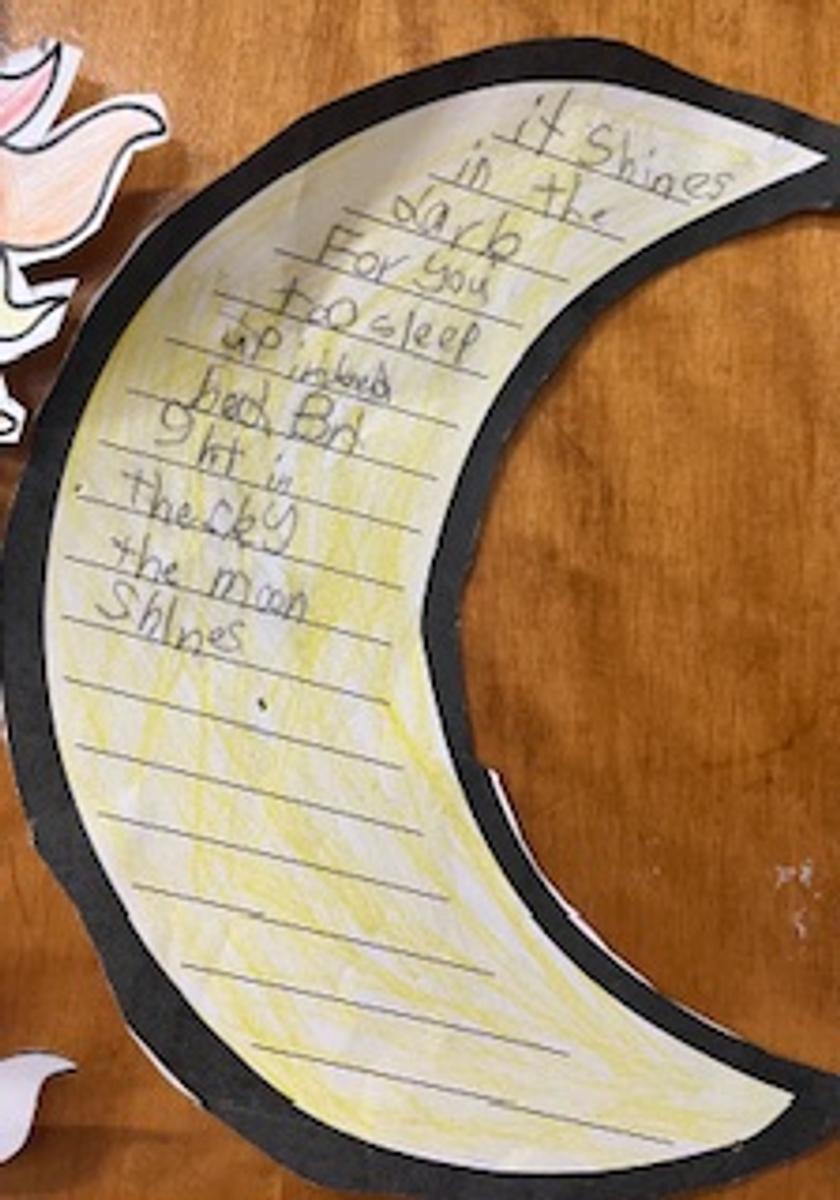 it Shines
in the
darb
For you
too sleep
up in bed
bed. Bri
ght in
the sky
the moon
Shines
.